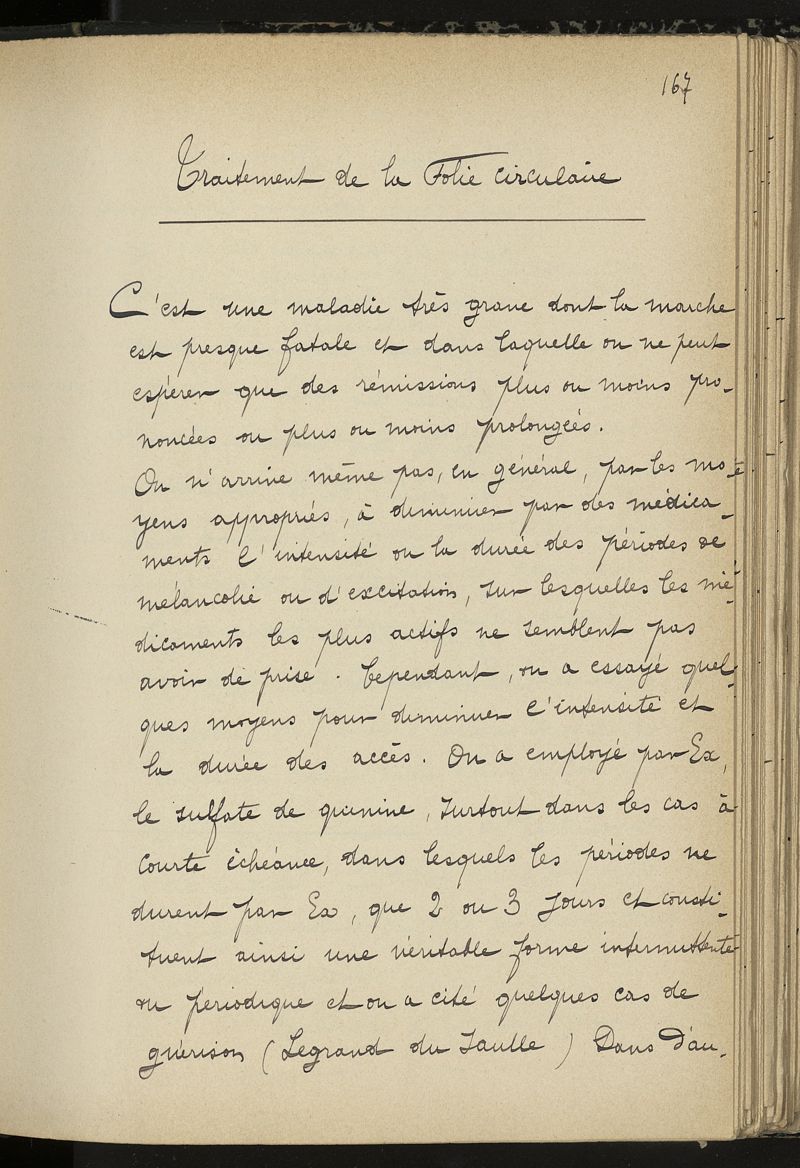 167
Traitement de la Folie circulaire
C'est une maladie très grave dont la marche
est presque fatale et dans laquelle on ne peut
espérer que des rémissions plus ou moins pro-
noncées ou plus ou moins prolongées.
On n'arrive même pas, en général, par les mo-
yens appropriés, à diminuer par des médica-
ments l'intensité ou la durée des périodes de
mélancolie ou d'excitation, sur lesquelles les mé-
dicaments les plus actifs ne semblent pas
avoir de prise. Cependant, on a essayé quel-
ques moyens pour diminuer l'intensité et
la durée des accès. On a employé par Ex,
le sulfate de quinine, surtout dans les cas à
courte échéance, dans lesquels les périodes ne
durent par Ex, que 2 ou 3 jours et consti-
tuent ainsi une véritable forme intermittente
ou périodique et on a cité quelques cas de
guérison (Legrand du Saulle) Dans d'au-